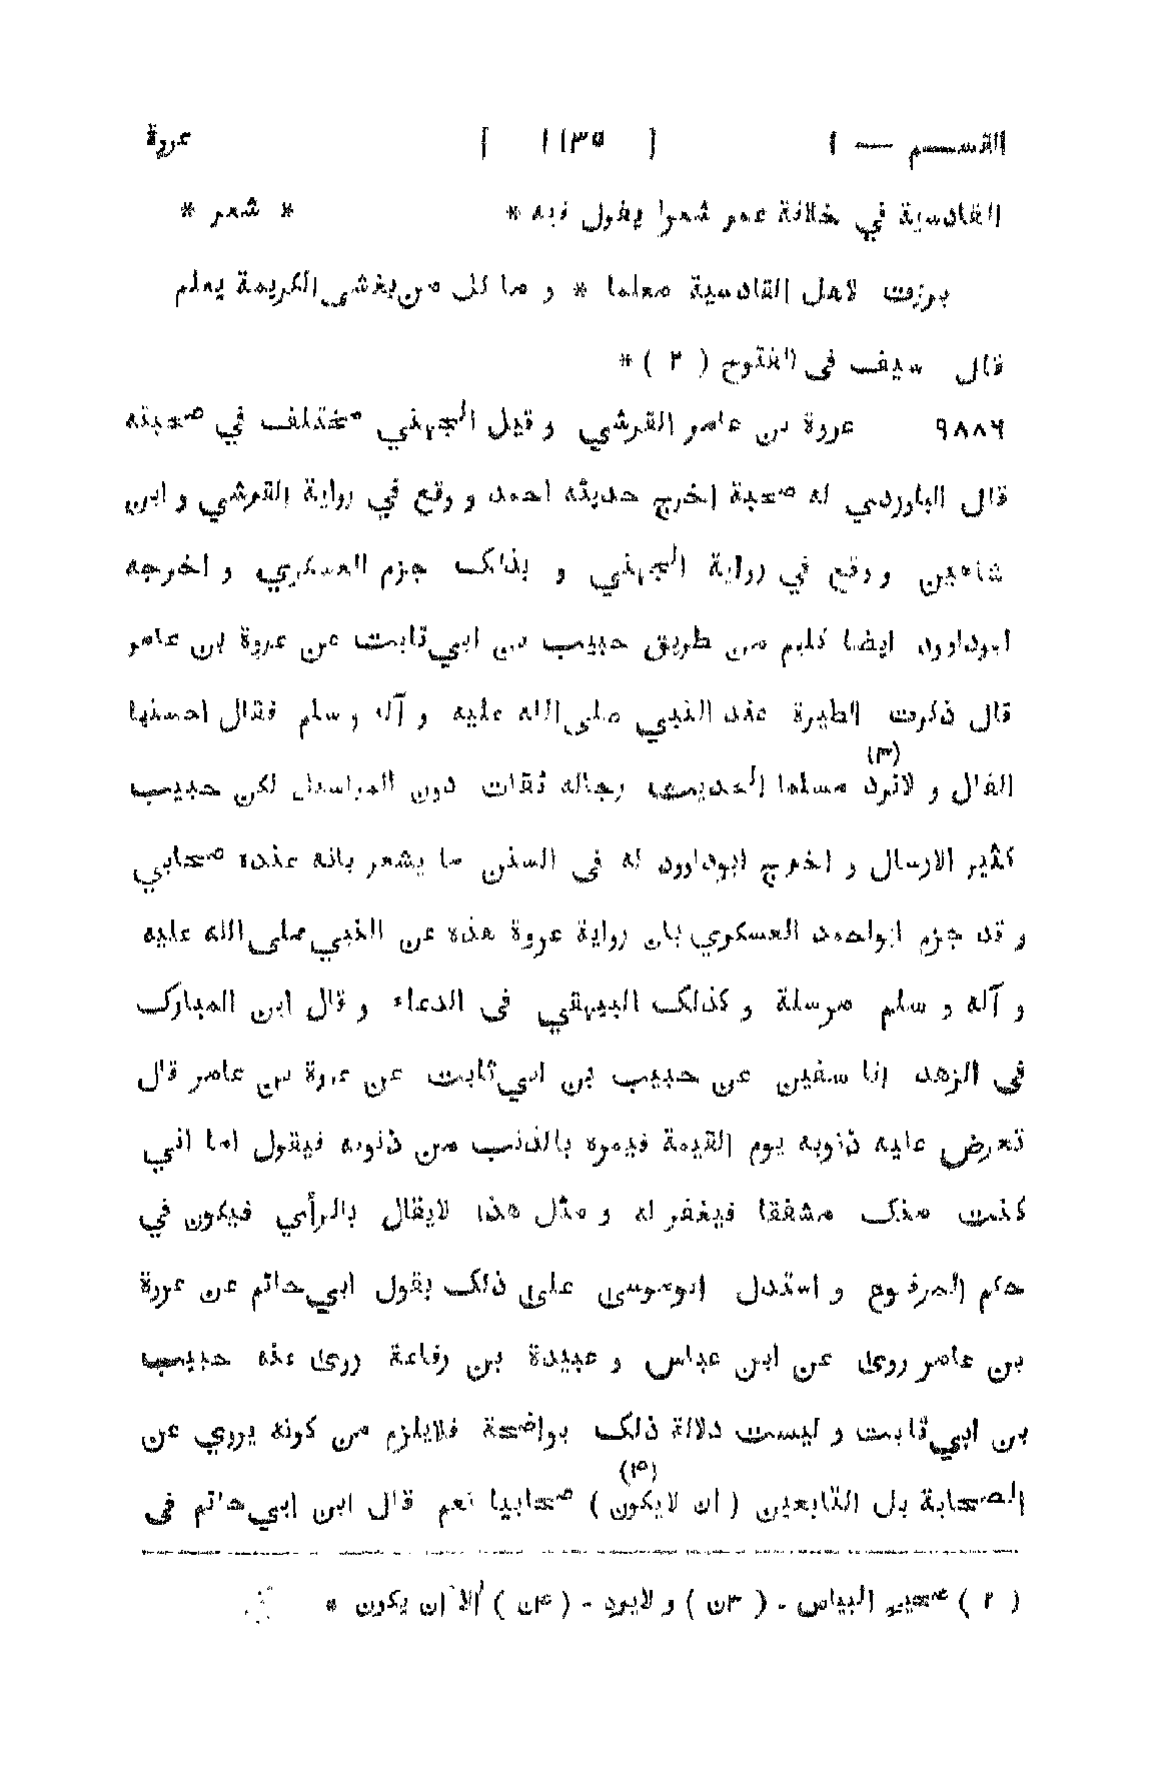 القســـم — ١ [ ١١٣٥ ] عروة
القادسية في خلافة عمر شعرا يقول فيه * * شعر *
برزت لاهل القادسية معلما * و ما كل من يغشى الكريهة يعلم
قال سيف فى الفتوح ( ٢ ) *
٩٨٨٦ عروة بن عامر القرشي و قيل الجهني مختلف في صحبته
قال الباوردي له صحبة اخرج حديثه احمد و وقع في رواية القرشي و ابن
شاهين و وقع في رواية الجهني و بذلك جزم العسكري و اخرجه
ابوداوود ايضا كلهم من طريق حبيب بن ابي ثابت عن عروة بن عامر
قال ذكرت الطيرة عند النبي صلى الله عليه و آله و سلم فقال احسنها
الفال و لاترد (٣) مسلما الحديث رجاله ثقات دون المراسيل لكن حبيب
كثير الارسال و اخرج ابوداوود له فى السنن ما يشعر بانه عنده صحابي
و قد جزم ابواحمد العسكري بان رواية عروة هذه عن النبي صلى الله عليه
و آله و سلم مرسلة و كذلك البيهقي فى الدعاء و قال ابن المبارك
فى الزهد انا سفين عن حبيب بن ابي ثابت عن عروة بن عامر قال
تعرض عليه ذنوبه يوم القيمة فيمره بالذنب من ذنوبه فيقول اما اني
كنت منك مشفقا فيغفر له و مثل هذا لايقال بالرأي فيكون في
حكم المرفوع و استدل ابوموسى على ذلك بقول ابي حاتم عن عروة
بن عامر روى عن ابن عباس و عبيدة بن رفاعة روى عنه حبيب
بن ابي ثابت و ليست دلالة ذلك بواضحة فلايلزم من كونه يروي عن
الصحابة بل التابعين ( ان لايكون (٤) ) صحابيا نعم قال ابن ابي حاتم فى
( ٢ ) صحير البياس - ( ٣ن ) و لايرد - ( ٤ن ) ألا ان يكون *